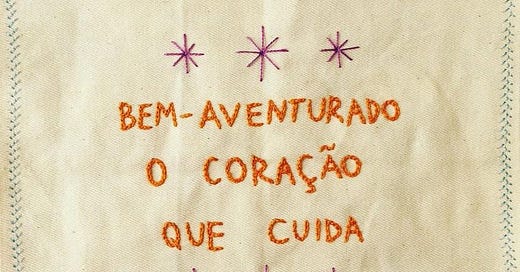 BEM-AVENTURADO
O CORAÇÃO
QUE CUIDA